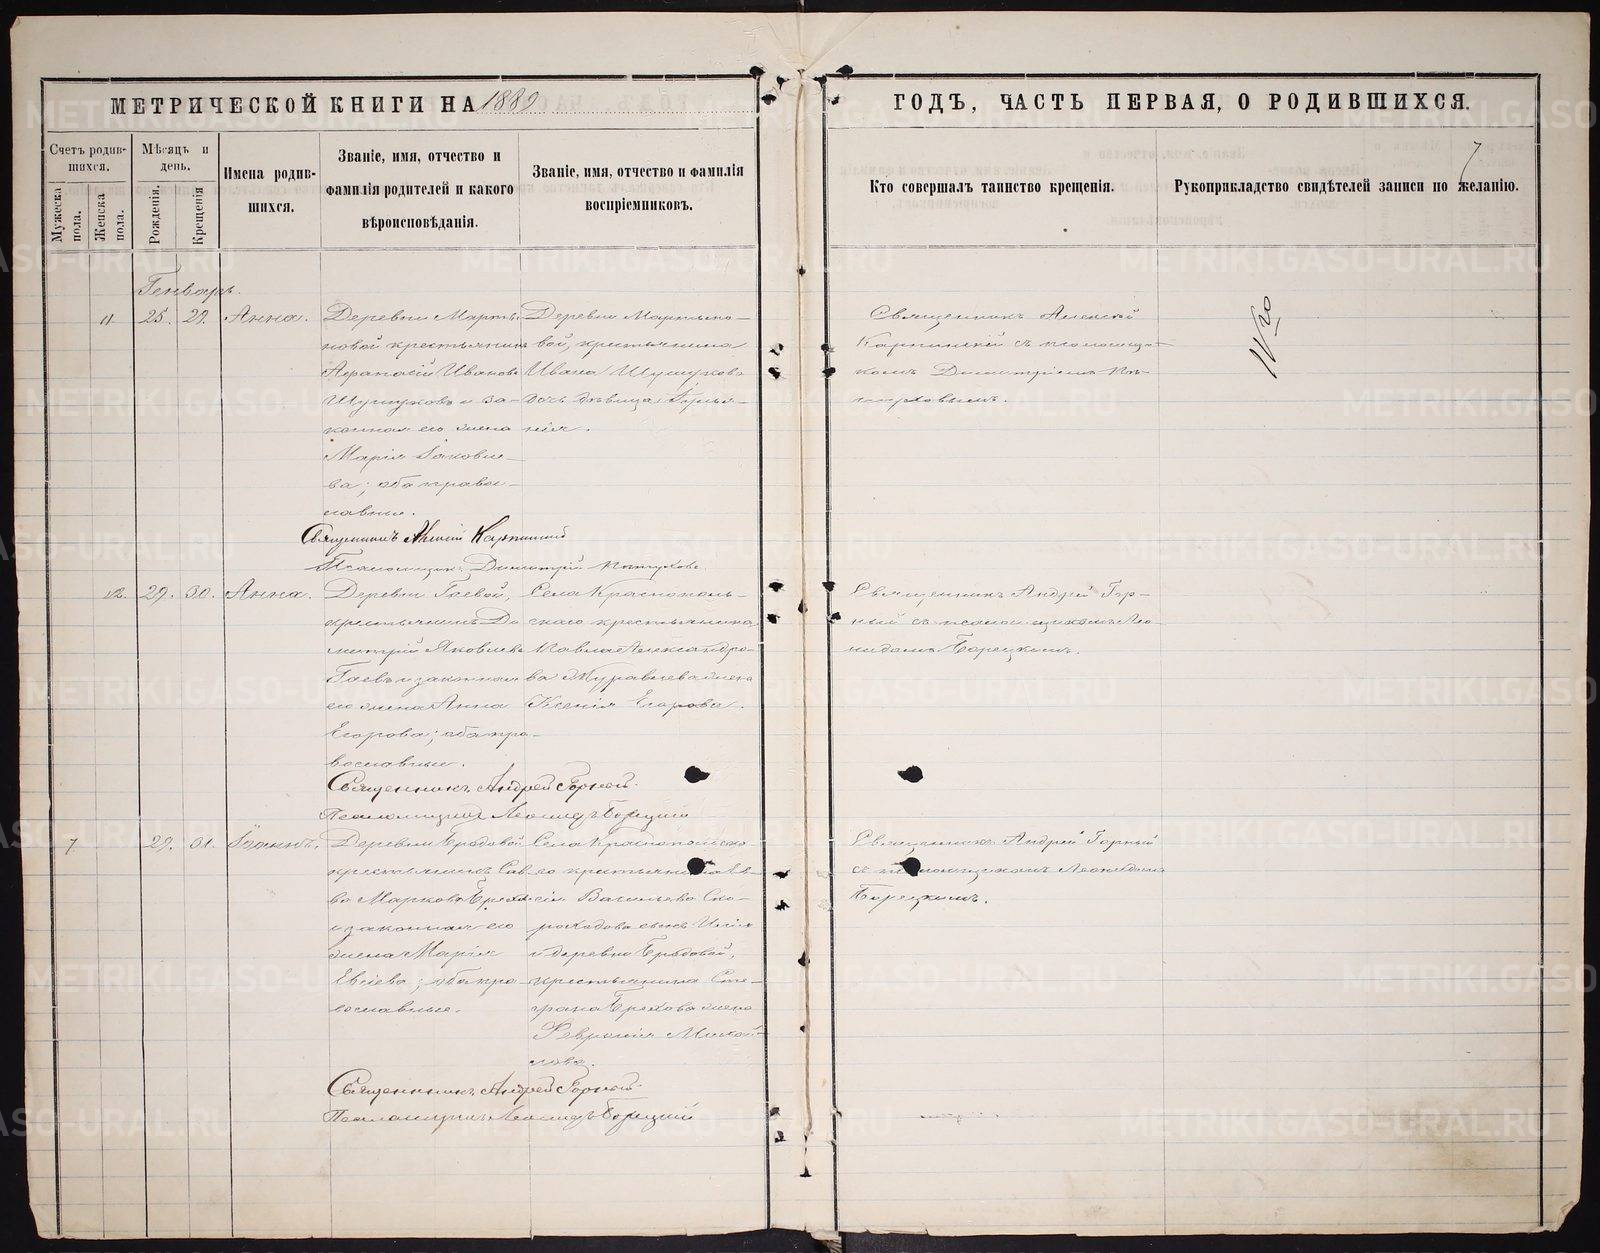 МЕТРИЧЕСКОЙ КНИГИ НА 1889
ГОДЪ, ЧАСТЬ ПЕРВАЯ, О РОДИВШИХСЯ.
7
Счетъ родив-
шихся.
Мужеска
пола.
Женска
пола.
Мѣсяцъ и
день.
Рожденія.
Крещенія
Имена родив-
шихся.
Званіе, имя, отчество и
фамилія родителей и какого
вѣроисповѣданія.
Званіе, имя, отчество и фамилія
воспріемниковъ.
Кто совершалъ таинство крещенія.
Рукоприкладство свидѣтелей записи по желанію.
Генварь.
11 25. 29. Анна.
Деревни Мартья-
новой крестьянинъ
Афанасій Ивановъ
и за-
конная его жена
Марія Іаковле-
ва; оба право-
славные.
Деревни Мартьяно-
вой, крестьянина
Ивана
дочь дѣвица
Священникъ Алексій
Карпинскій съ псаломщи-
комъ Димитріемъ Пѣ-
туховымъ.
№ 20
Священникъ Алексій Карпинскій
Псаломщикъ Димитрій Пѣтуховъ.
12. 29. 30. Анна.
Деревни Гаевой,
крестьянинъ Ди-
митрій Яковлевъ
Гаевъ и законная
его жена Анна
Егорова; оба пра-
вославные.
Села Краснополь-
скаго крестьянина
Павла Александро-
ва Журавлева жена
Ксенія Егорова.
Священникъ Андрей Гор-
ный съ псаломщикомъ Лео-
нидомъ Борецкимъ.
Священникъ Андрей Горный.
Псаломщикъ Леонидъ Борецкій
7 29. 31. Іоаннъ.
Деревни Бродовой
крестьянинъ Сав-
ва Марковъ
и законная его
жена Марія
Евсіева; оба пра-
вославные.
Села Краснопольска-
го крестьянина Ев-
сія Васильева Ско-
роходова сынъ
и деревни Бродовой,
крестьянина Сте-
фана Брехова жена
Февронія Михай-
лова.
Священникъ Андрей Горный
съ псаломщикомъ Леонидомъ
Борецкимъ.
Священникъ Андрей Горный.
Псаломщикъ Леонидъ Борецкій
METRIKI.GASO-URAL.RU